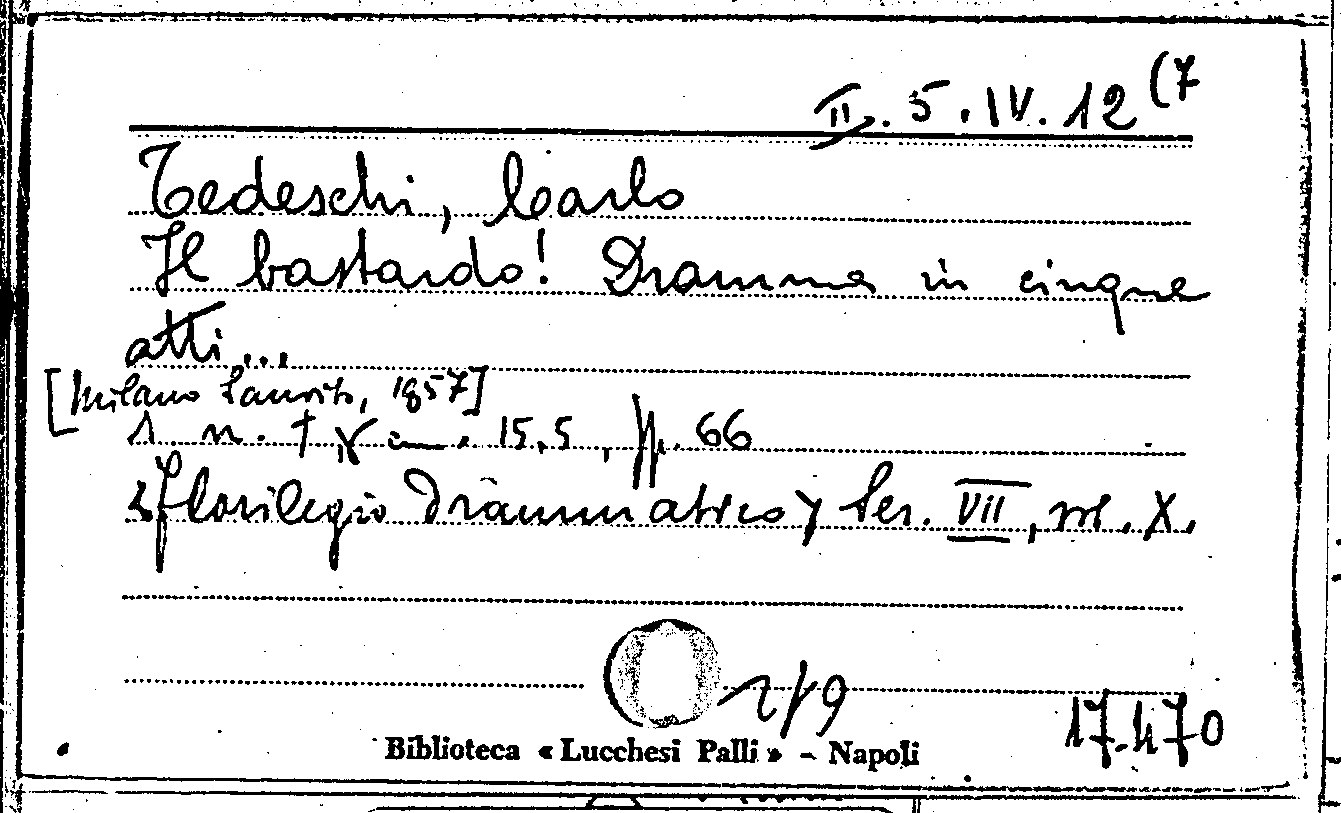 II. 5. IV. 12 (7
Tedeschi, Carlo
Il bastardo! Dramma in cinque
atti...
[Milano Sanvito, 1857]
s. n. t. in 8 cm. 15,5, pp. 66
«Florilegio Drammatico» Ser. VII, vol. X.
Biblioteca « Lucchesi Palli » – Napoli
17.470